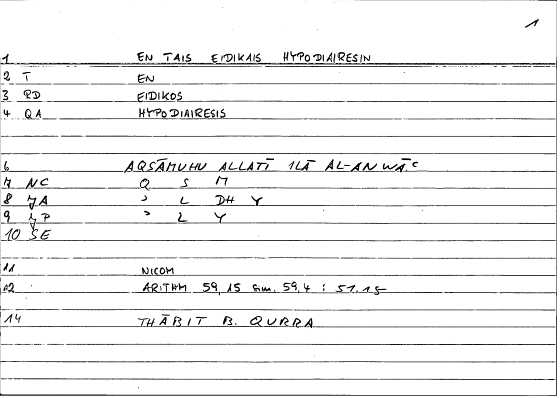 1
1 EN TAIS EIDIKAIS HYPODIAIRESIN
2 T EN
3 RD EIDIKOS
4 QA HYPODIAIRESIS
6 AQSĀMUHU ALLATĪ ILĀ AL-ANWĀʿ
7 NC Q S M
8 JA ʾ L DH Y
9 JP ʾ L Y
10 SE
11 NICOM
12 ARITHM 59,15 sim. 59,4 : 51.15
14 THĀBIT B. QURRA